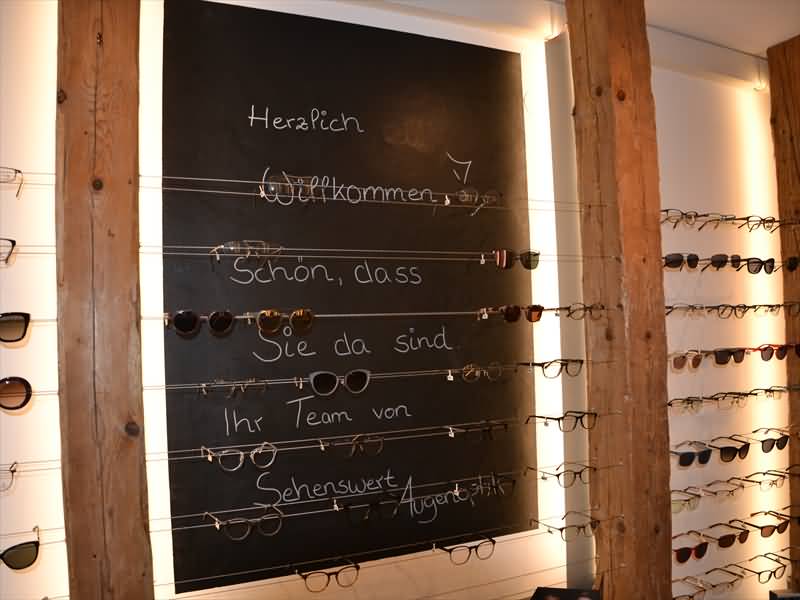 Herzlich
Willkommen
Schön, dass
Sie da sind.
Ihr Team von
Sehenswert Augenoptik